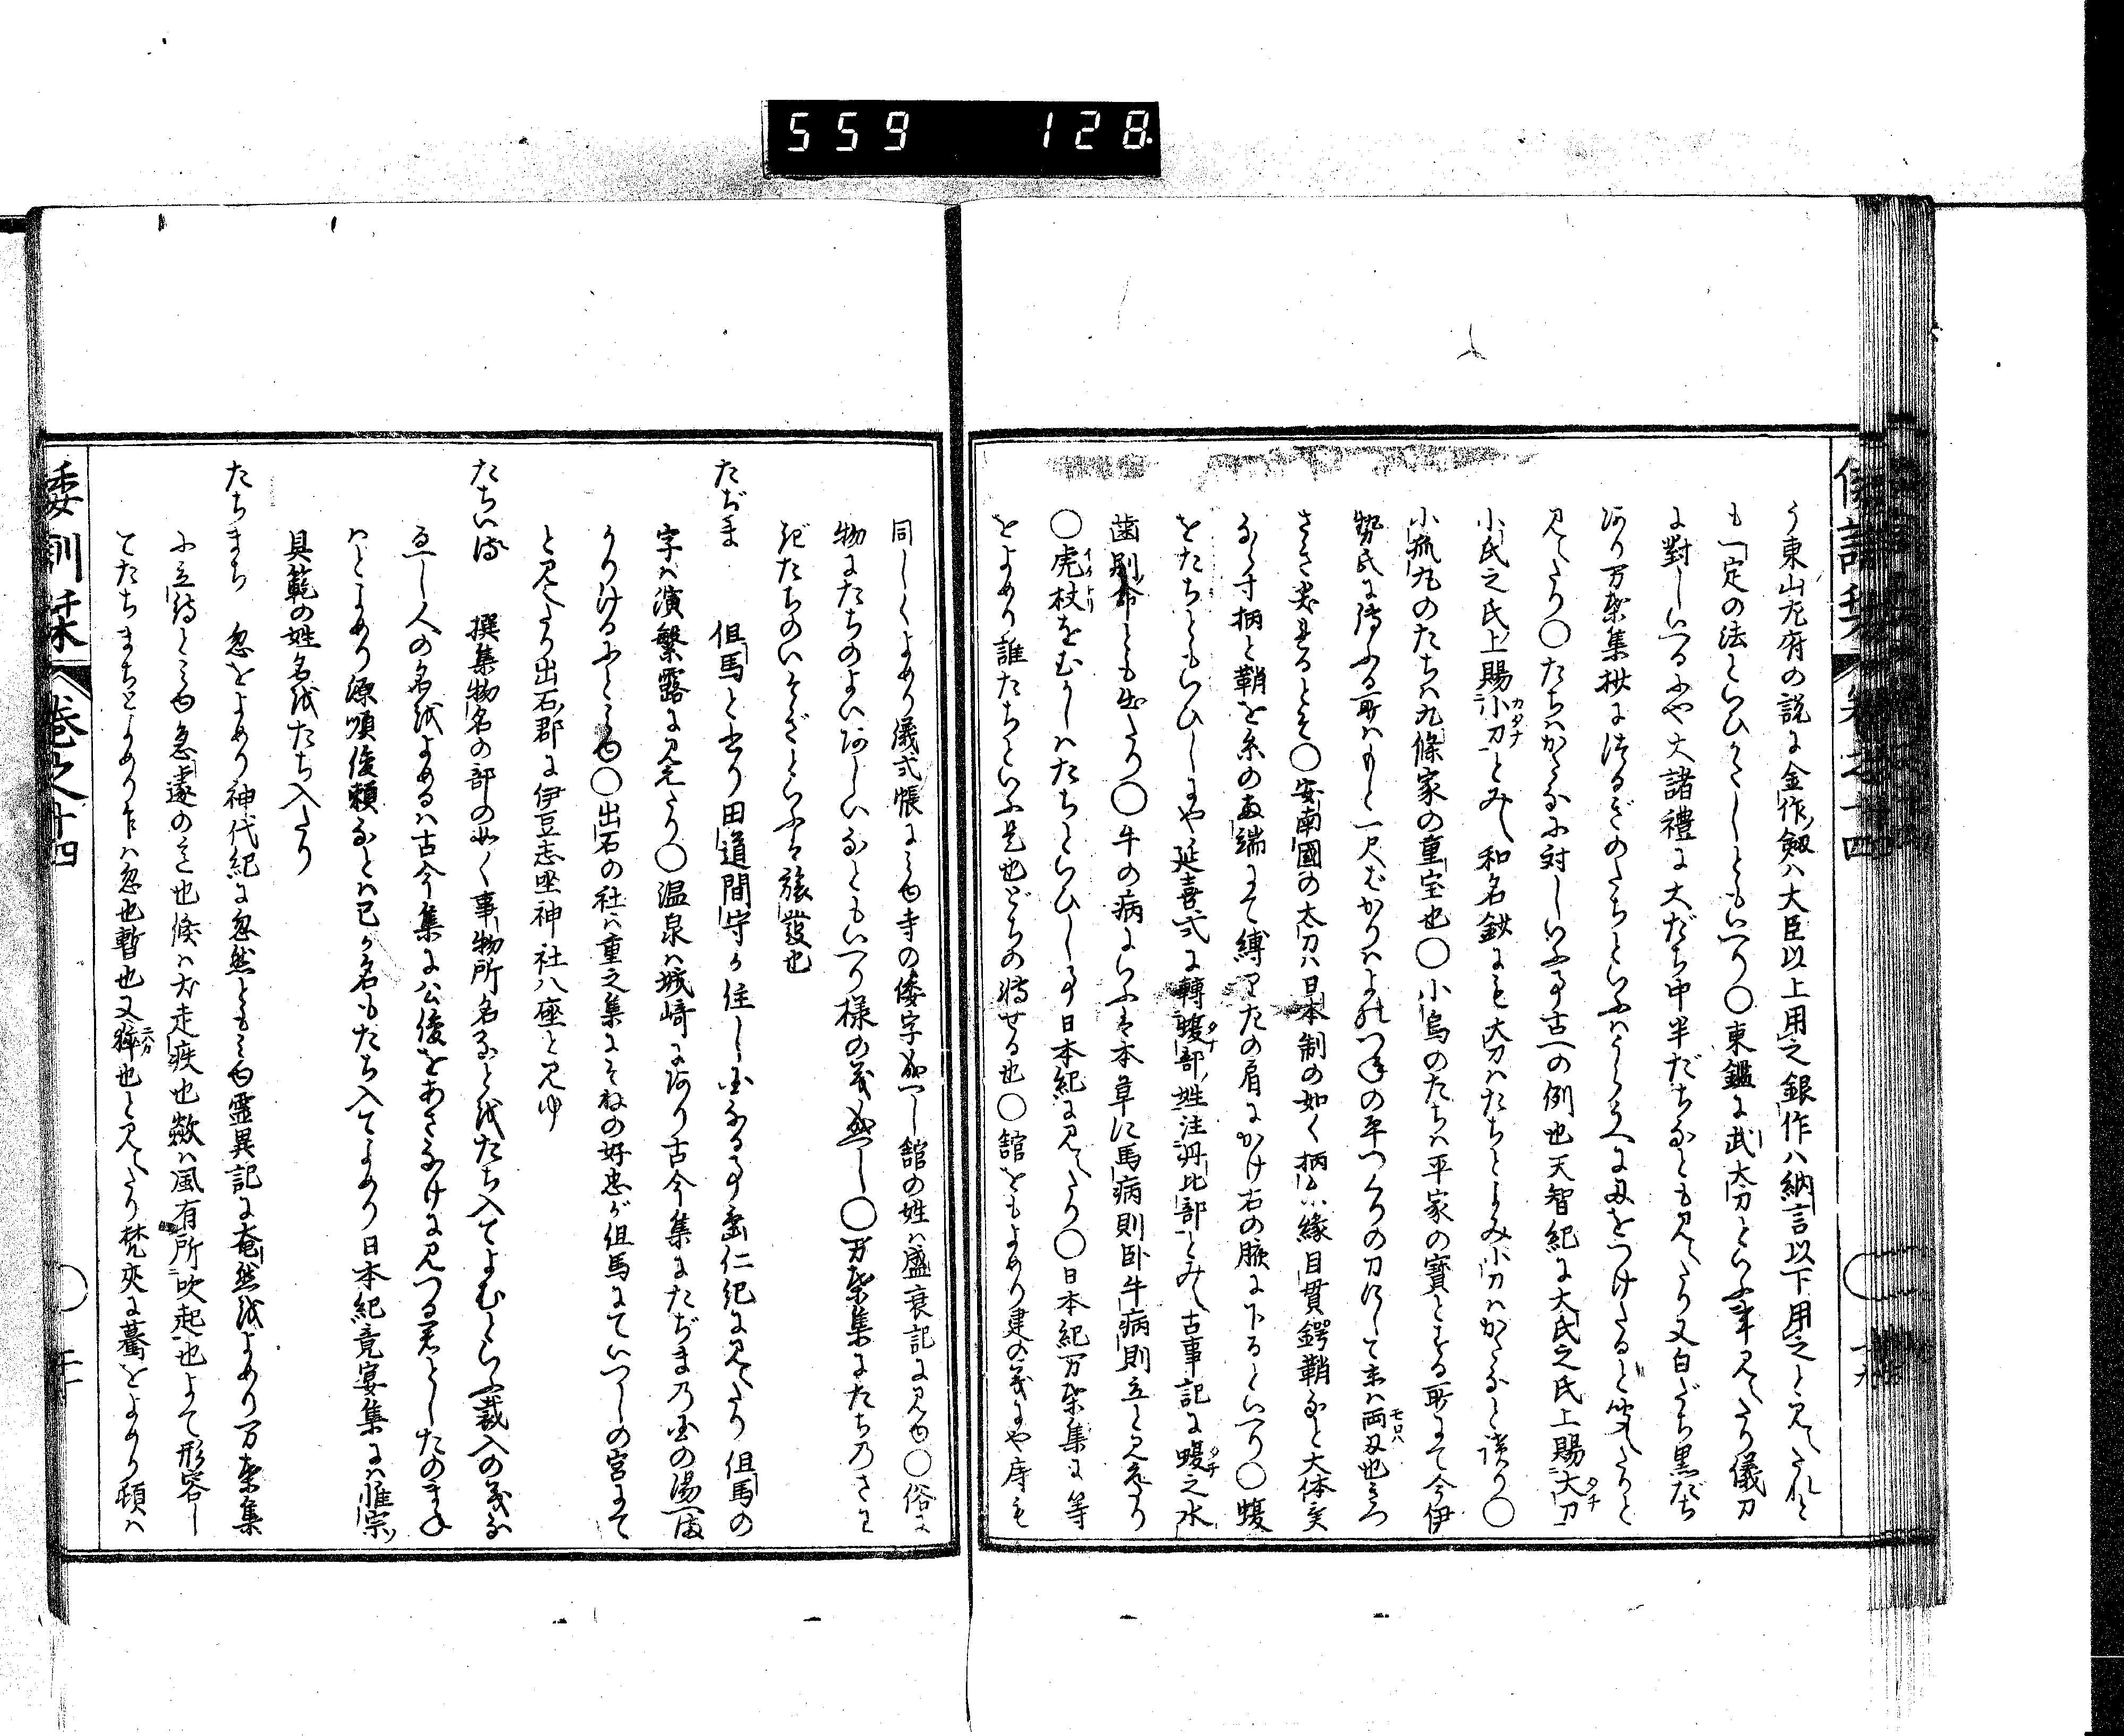 559 128
う東山左府の説に金作ノ劔ハ大臣以上用之銀作ハ納言以下用之と見えたれと
も一定の法といひかたしともいへり○東鑑に武大刀といふ事見えたり儀刀
に對しいへるにや大諸禮に大だち中半だちなとも見えたり又白だち黒だち
あり万葉集抄につるぎのたちといふハうらうへに刃をつけたるど聞えたりと
見えたり○たちハかたなに対しいふ事古への例也天智紀に大氏之氏上賜大刀
小氏之氏上賜小刀とみえ和名鈔にも大刀ハたちとよみ小刀ハかたなと読り○
小狐丸のたちハ九條家の重宝也○小烏のたちハ平家の寶とする所にて今伊
勢氏に傳ふる所ハもと一尺はかりハよのつねの平つくりの刀にして末ハ両刃也きつ
さき
○安南國の太刀ハ日本制の如く柄ハ縁目貫鍔鞘なと大体美
なら寸柄と鞘を糸の両端にて縛りたの肩にかけ右の腋に下るといへり○蝮
をたちともいひしにや延喜式に轉蝮部ノ姓注丹比部とみえ古事記に蝮之水
歯別命とも出たり○牛の病にいふハ本草に馬病則臥牛病則立と見えたり
○虎杖をむかしハたちといひし事日本紀に見えたり○日本紀万葉集に等
をよめり誰たちといふ是也どちの轉せる也○舘をもよめり建の義にや庤も
同しくよめり儀式帳にみゆ寺の倭字成へし舘の姓ハ盛衰記に見ゆ○俗に
物にたちのよいあしいなともいへり様の義成へし○万葉集にたちのさわ
ぎたちのいそぎといふハ旅發也
たぢま 但馬と書り田道間守か住し国なる事垂仁紀に見えたり但馬の
字ハ濱繁露に見えたり○温泉ハ城崎にあり古今集にたぢまの国の湯へま
かりけるにとみゆ○出石の社ハ重之集にそねの好忠が但馬にていつしの宮にて
と見えたり出石ノ郡に伊豆志坐神社八座と見ゆ
たちいる 撰集物名の部の如く事物所名なとをたち入てよむといふ裁入の義な
るへし人の名をよめるハ古今集に公俊をあさなけに見つる君としたのまね
ハとよめり源順俊頼なとハ己か名もたち入てよめり日本紀竟宴集にハ惟宗ノ
具範の姓名をたち入たり
たちまち 忽をよめり神代紀に忽然ともみゆ霊異記に奄然をよめり万葉集
に立待とみゆ急遽の意也倏ハ犬走疾也歘ハ風有所吹起也よて形容し
てたちまちとよめり乍ハ忽也暫也又猝也と見えたり梵夾に驀をよめり頓ハ
倭訓栞 巻之十四